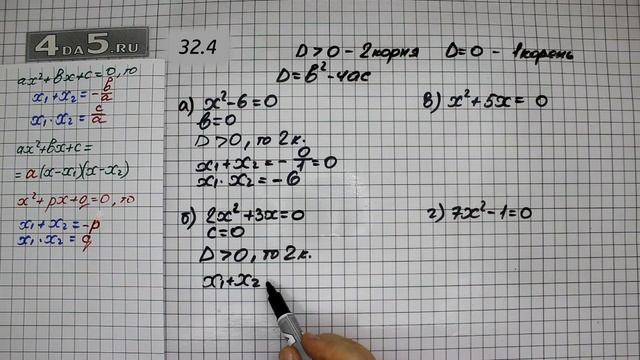 4 DA 5.RU
32.4
D>0 - 2 корня D=0 - 1 корень
D=b²-4ac
ax²+bx+c=0, то
x₁+x₂=-b/a
x₁·x₂=c/a
ax²+bx+c=
=a(x-x₁)(x-x₂)
x²+px+q=0, то
x₁+x₂=-p
x₁·x₂=q
а) x²-6=0
b=0
D>0, то 2 к.
x₁+x₂=-0/1=0
x₁·x₂=-6
б) 2x²+3x=0
c=0
D>0, то 2 к.
x₁+x₂
в) x²+5x=0
г) 7x²-1=0